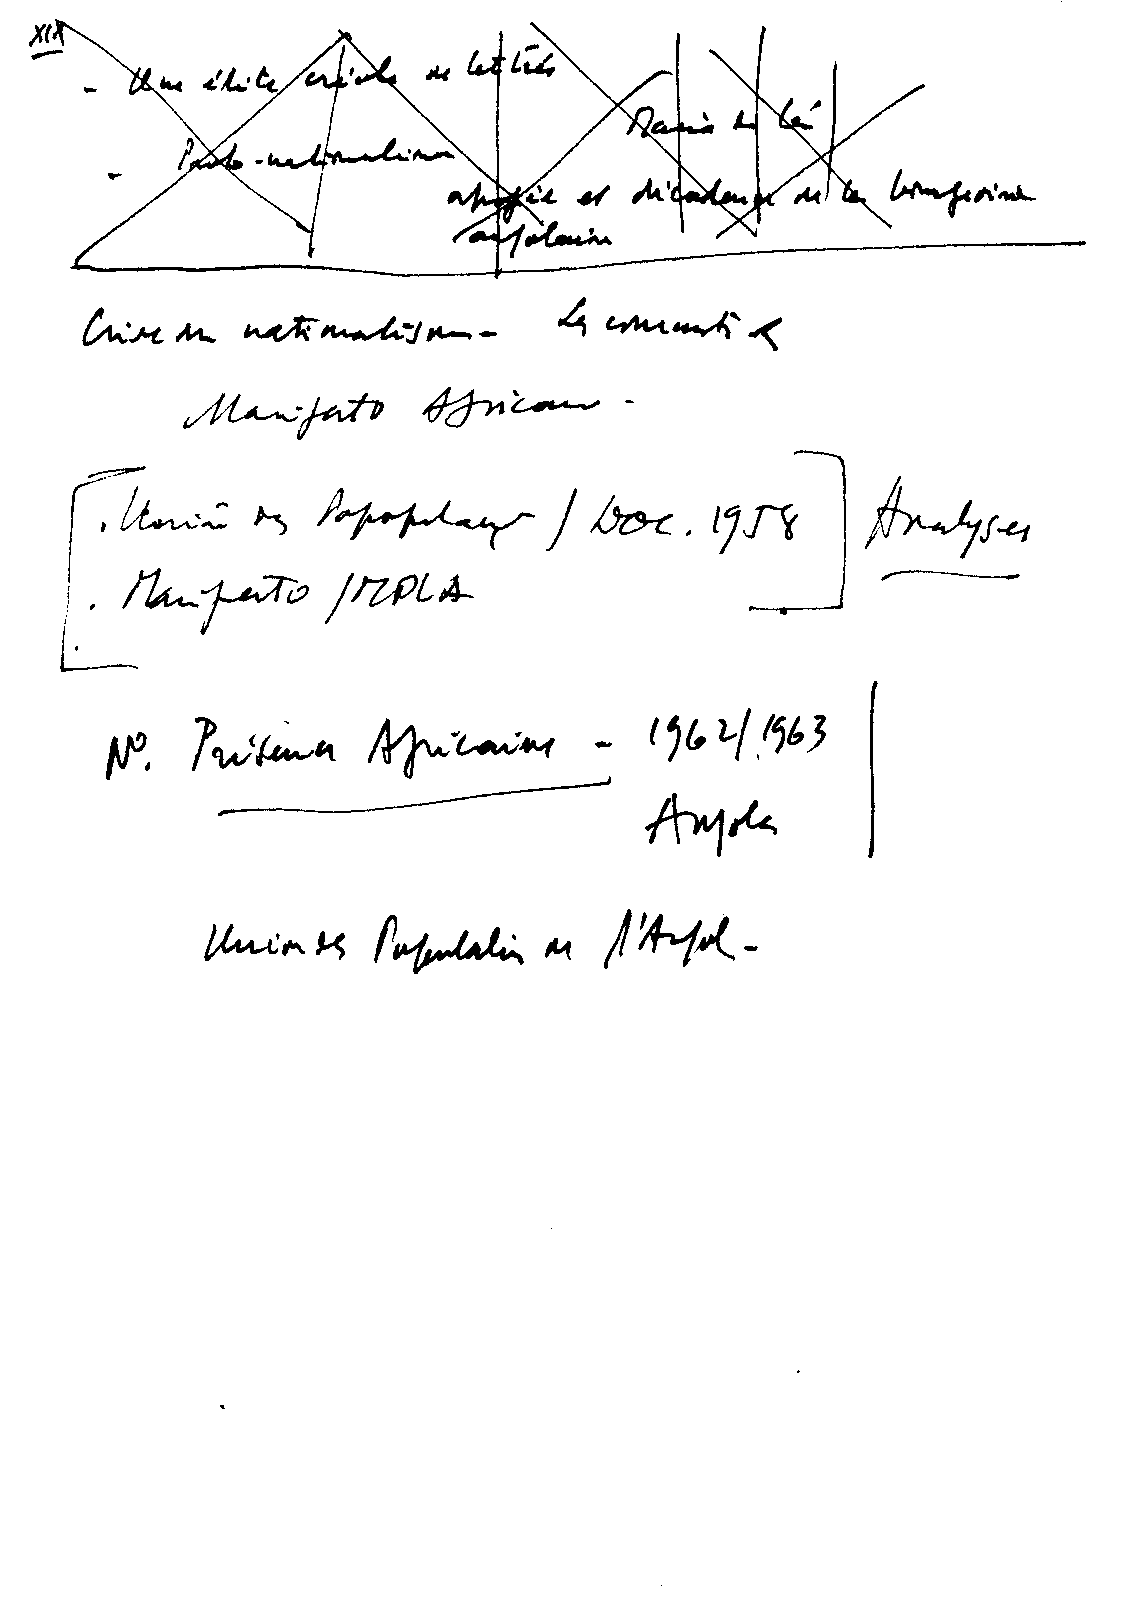 XIX
- Une élite créole de lettrés
- Proto-nationalisme
Mario de
apogée et décadence de la bourgeoisie
angolaise
Crise du nationalisme - Les courants
Manifesto Africain -
. União des / DOC. 1958
. Manifesto / MPLA
Analyses
Nº. Présence Africaine - 1962/1963
Angola
Union des Populations de l'Angol-